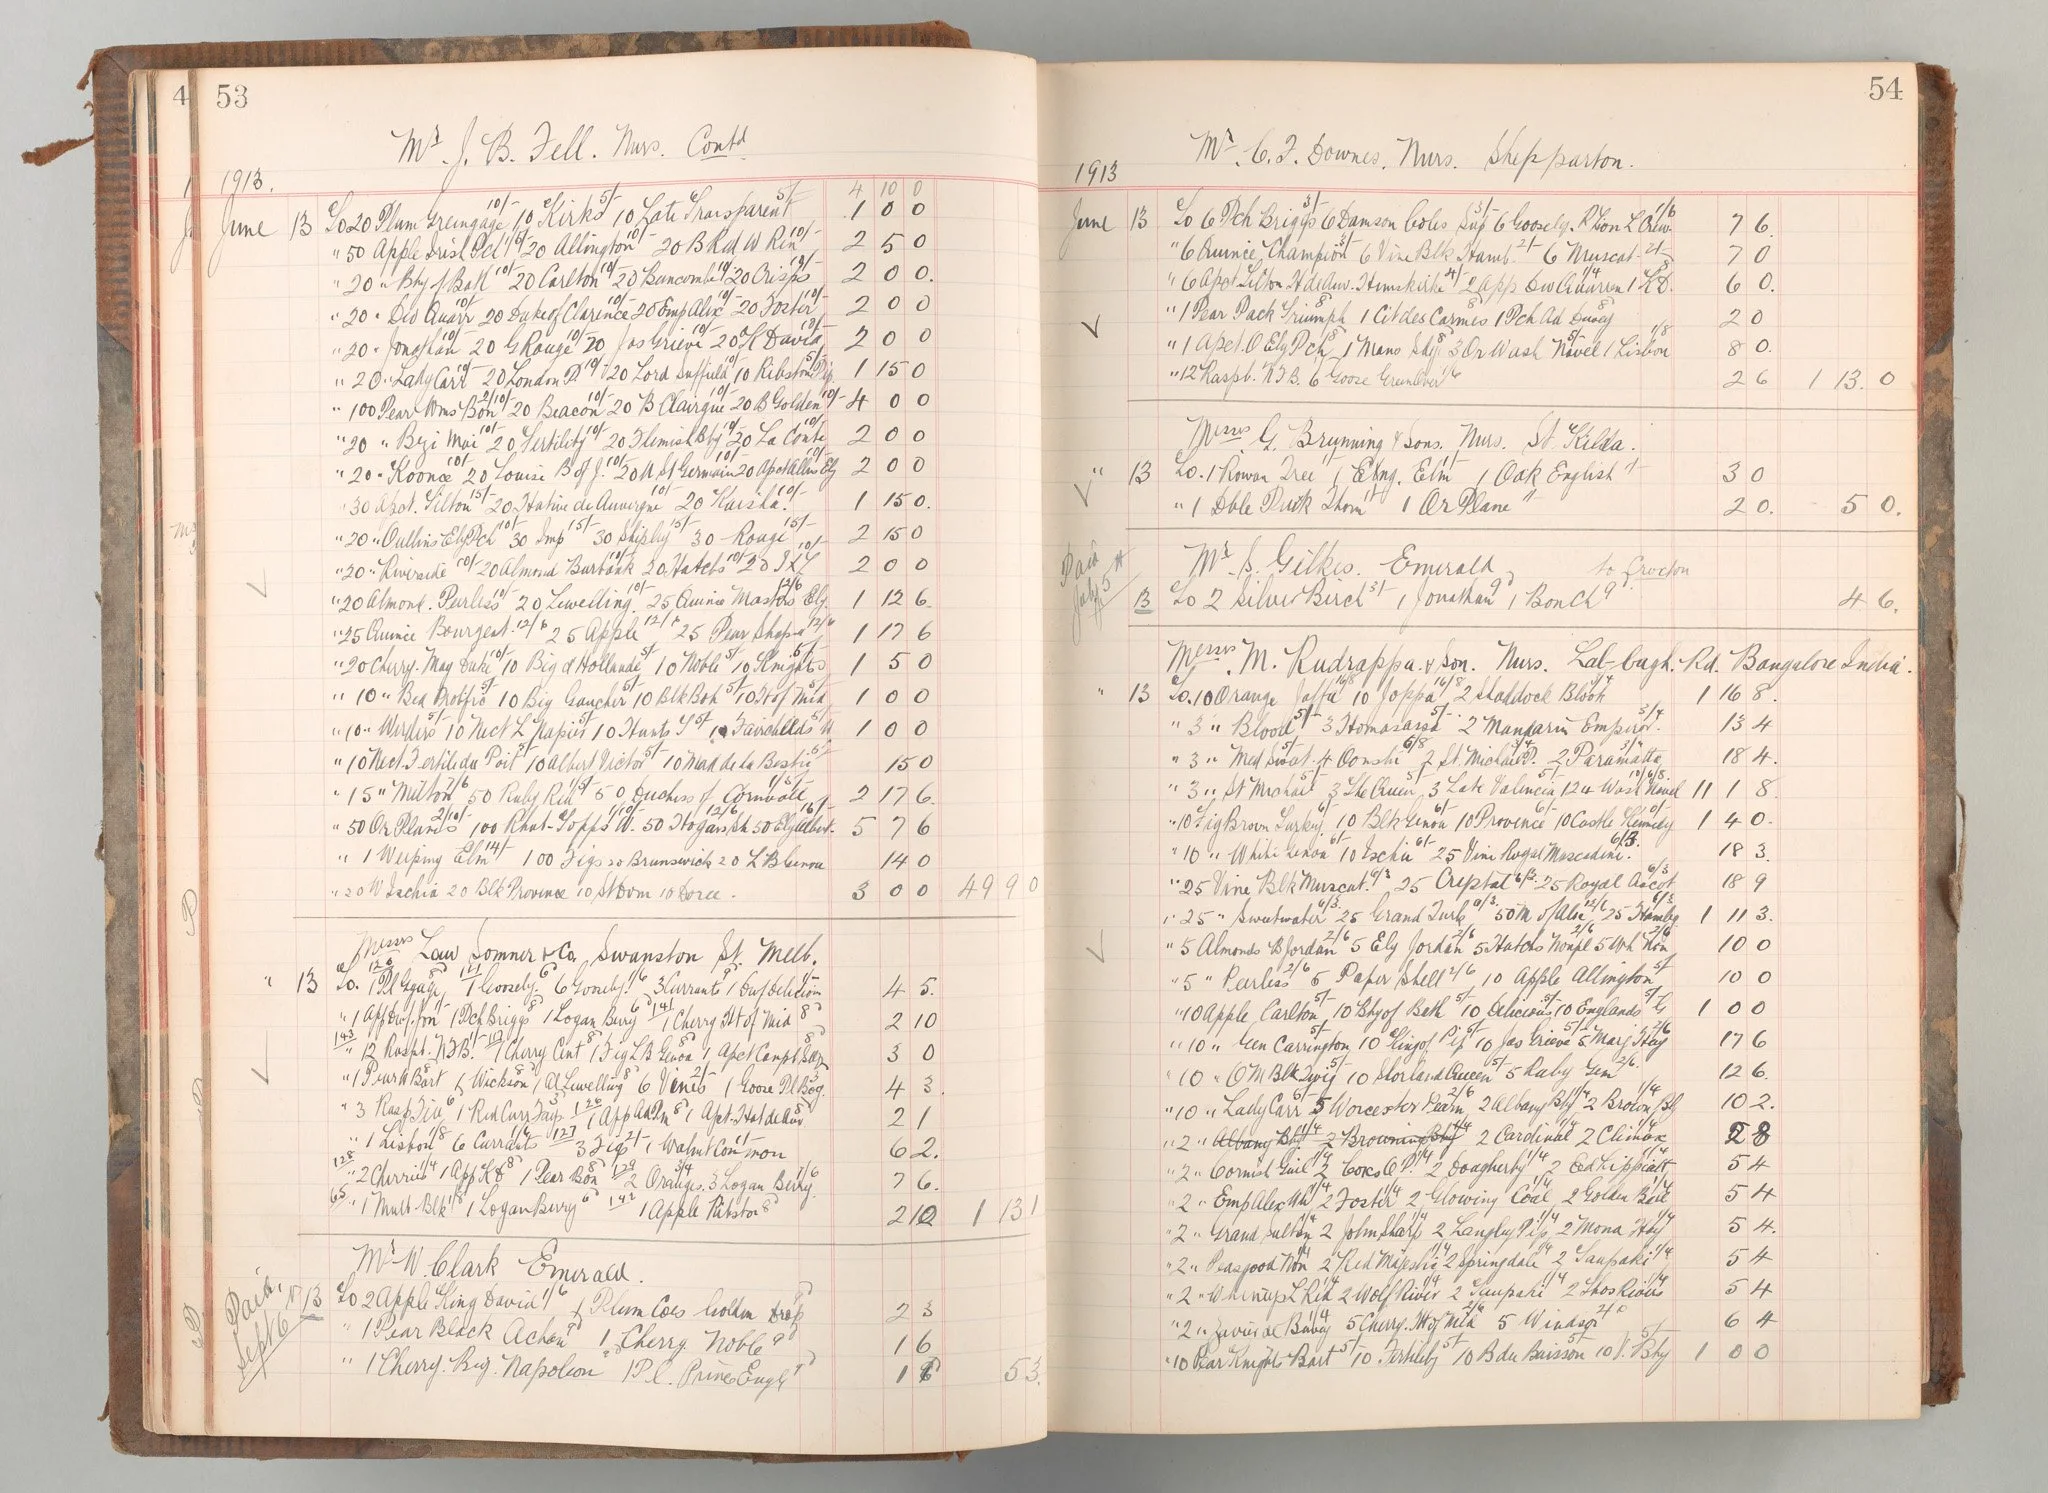 4 53
Mr. J. B. Fell. Nurs. Contd
1913.
4 10 0
June 13 To 20 Plum Greengage 10/- 10 Kirks 5/- 10 Late Transparent 5/- 1 0 0
" 50 Apple Irish Pch 20 Allington 10/- 20 B Rd W Rein 10/- 2 5 0
" 20 " Bty of Bath 10/- 20 Carlton 10/- 20 Buncombe 10/- 20 Crisps 10/- 2 0 0.
" 20 " Dev Quarr 10/- 20 Duke of Clarence 10/- 20 Emp Alex 10/- 20 Foster 10/- 2 0 0
" 20 " Jonathan 10/- 20 G Rouge 10/- 20 Jas Grieve 10/- 20 K David 10/- 2 0 0
" 20 " Lady Carr 10/- 20 London P 10/- 20 Lord Suffield 10/- 10 Ribston Pip. 5/- 1 15 0
" 100 Pear Wms Bon 2/10/- 20 Beacon 10/- 20 B Clairgue 10/- 20 B Golden 10/- 4 0 0
" 20 " Bzi Mai 10/- 20 Fertility 10/- 20 Flemish Bty 10/- 20 La Conte 2 0 0
" 20 " Koonce 10/- 20 Louise B of J. 10/- 20 U St Germain 10/- 20 Apct Allins Ely 10/- 2 0 0
" 30 Apct. Tilton 15/- 20 Hative de Auvergne 10/- 20 Kaisha 10/- 1 15 0.
" 20 " Oullins Ely Pch 10/- 30 Imp 15/- 30 Shipley 15/- 30 Rouge 15/- 2 15 0
" 20 " Riverside 10/- 20 Almond Burbank 10/- 20 Hatchs 10/- 20 IXL 10/- 2 0 0
" 20 Almond. Peerless 10/- 20 Lewelling 10/- 25 Quince Masters Ely. 12/6 1 12 6.
" 25 Quince Bourgeat. 12/6 25 Apple 12/6 25 Pear Shaped 12/6 1 17 6
" 20 Cherry. May Duke 10/- 10 Big d Hollande 5/- 10 Noble 5/- 10 Knights 5/- 1 5 0
" 10 " Bed Prolific 5/- 10 Big Gaucher 5/- 10 Blk Boh 5/- 10 Ht of Mid 5/- 1 0 0
" 10 " Werders 5/- 10 Nect L Rapier 5/- 10 Hunts T 5/- 10 Fairchilds 5/- 1 0 0
" 10 Nect. Fertile du Poit 5/- 10 Albert Victor 5/- 10 Mad de la Bastie 5/- 15 0
" 15 " Milton 7/6 50 Ruby Red 1/5/- 50 Duchess of Cornwall 1/5/- 2 17 6.
" 50 Or Planes 2/10/- 100 Rhub-Topps W. 1/10/- 50 Hogans Sh 12/6 50 Ely Albert. 5 7 6
" 1 Weeping Elm 14/- 100 Figs 20 Brunswick 20 L B Genoa 14 0
" 20 W Ischia 20 Blk Province 10 St Dom 10 Doree. 3 0 0 49 9 0
Messrs Law Somner & Co. Swanston St. Melb.
" 13 To. 126 1 Pl Ggage 8d 121 1 Goosely. 6d 6 Goosely. 1/6 3 Currants 9d 1 Dwf Delicion 4 5.
" 1 App Dwf Jon 1/- 1 Pch Briggs 8d 1 Logan Berry 6d 141 1 Cherry Ht of Mid 8d 2 10
143 " 12 Raspb. NJB. 1/- 1 Cherry Cent 8d 1 Fig L B Genoa 8d 1 Apct Campb 3 0
" 1 Pear W Bart 8d 1 Wickson 8d 1 Al Lewelling 8d 6 Vines 2/- 1 Goose Pl Boy. 3d 4 3.
" 3 Rasp Five 6d 1 Red Curr Fays 3d 126 1 App Ad Pn 8d 1 Apt. Hat de Auv 2 1
" 1 Lisbon 1/8 6 Currants 1/6 127 3 Figs 2/- 1 Walnut Common 1/- 6 2.
128 " 2 Cherries 1/4 1 App K D 8d 1 Pear Bon 8d 129 2 Oranges 3/4 3 Logan Berry. 1/6 7 6.
65 " 1 Mulb Blk 1/8 1 Logan Berry 6d 142 1 Apple Ribston 8d 2 10 1 13 1
Mr W. Clark Emerald.
Paid. Sept 6
13 To 2 Apple King David 1/6 1 Plum Coes Golden Drop 2 3
" 1 Pear Black Achan 9d 1 Cherry Noble 9d 1 6
" 1 Cherry. Big. Napoleon 1 Pl. Prince Engle 1 6 5 3.
54
Mr. C. F. Downes, Nurs. Shepparton.
1913
June 13 To 6 Pch Briggs 3/- 6 Damson Coles Sug 3/- 6 Goosely. R Lion L Crew 1/6 7 6.
" 6 Quince Champion 3/- 6 Vine Blk Hamb. 2/- 6 Muscat 2/- 7 0
" 6 Apct Tilton H de Auv. Hemskirke 4/- 2 App Dev Quarren 1/4 1 K D. 8d 6 0.
" 1 Pear Pack Triumph 8d 1 Cit des Carmes 8d 1 Pch Ad Dewey 8d 2 0
" 1 Apct. O Ely Pch 8d 1 Mans Sdg 8d 3 Or Wash Navel 5/- 1 Lisbon 1/8 8 0.
" 12 Raspb. NJB. 6 Goose Greenover 1/6 2 6 1 13. 0
Messrs G. Brunning & Sons. Nurs. St. Kilda.
" 13 To. 1 Rowan Tree 1 Elng. Elm 1/- 1 Oak English 1/- 3 0
" 1 Dble Pink Thorn 1/- 1 Or Plane 1/- 2 0. 5 0.
Paid July 5
Mr. S. Gilkes. Emerald, to Crocton
13 To 2 Silver Birch 3/- 1 Jonathan 9d 1 Bon Ch 9d 4 6.
Messrs. M. Rudrappa & Son. Nurs. Lal-bagh. Rd. Bangalore India.
" 13 To. 10 Orange Jaffa 16/8 10 Joppa 16/8 2 Shaddock Blood 3/4 1 16 8.
" 3 " Blood 5/- 3 Homasassa 5/- 2 Mandarin Emperor. 3/4 13 4
" 3 " Med Sweet 5/- 4 Oonshi 6/8 2 St. Michael P. 3/4 2 Paramatta 3/4 18 4.
" 3 " St Michael 5/- 3 The Queen 5/- 3 Late Valencia 5/- 124 Wash Navel 10/6/8 11 1 8.
" 10 Fig Brown Turkey. 6/- 10 Blk Genoa 6/- 10 Province 6/- 10 Castle Kennedy 6/- 1 4 0.
" 10 " White Genoa 6/- 10 Ischia 6/- 25 Vine Royal Muscadine. 6/3 18 3.
" 25 Vine Blk Muscat. 6/3 25 Crystal 6/3 25 Royal Ascot 6/3 18 9
" 25 " Sweetwater 6/3 25 Grand Turk 6/3 50 M of Alex 12/6 25 Hambg 6/3 1 11 3.
" 5 Almonds B Jordan 2/6 5 Ely Jordan 2/6 5 Hatchs Nonpl 2/6 5 Wh Non 2/6 10 0
" 5 " Peerless 2/6 5 Paper Shell 2/6 10 Apple Allington 5/- 10 0
" 10 Apple Carlton 5/- 10 Bty of Bath 5/- 10 Delicious 5/- 10 Englands G 5/- 1 0 0
" 10 " Gen Carrington 5/- 10 King of Pip 5/- 10 Jas Grieve 5/- 5 Marj Hay 2/6 17 6
" 10 " O M Blk Twig 5/- 10 Shorland Queen 5/- 5 Ruby Gem 2/6 12 6.
" 10 " Lady Carr 5/- 5 Worcester Pearm 2/6 2 Albany Bty 1/4 2 Brown Bty 1/4 10 2.
" 2 " Albany Bty 1/4 2 Browning Bty 1/4 2 Cardinal 1/4 2 Climax 1/4 2 8
" 2 " Cornish Gil 1/4 2 Coxs O P. 1/4 2 Dougherty 1/4 2 Ed Lippiatt 1/4 5 4
" 2 " Emp Alex Wh 1/4 2 Foster 1/4 2 Glowing Coal 1/4 2 Golden Ball 1/4 5 4
" 2 " Grand Sultan 1/4 2 John Sharp 1/4 2 Langley Pip 1/4 2 Mona Hay 1/4 5 4.
" 2 " Peasgood Non 1/4 2 Red Majestic 1/4 2 Springdale 1/4 2 Taupaki 1/4 5 4
" 2 " L Red 1/4 2 Wolf River 1/4 2 Taupaki 1/4 2 Thos Rivers 1/4 5 4
" 2 " 5 Cherry. Ht of Mid 2/6 5 Windsor 2/6 6 4
" 10 Pear Knights Bart 5/- 10 Fertility 5/- 10 B du Buisson 5/- 10 V. Bty 5/- 1 0 0